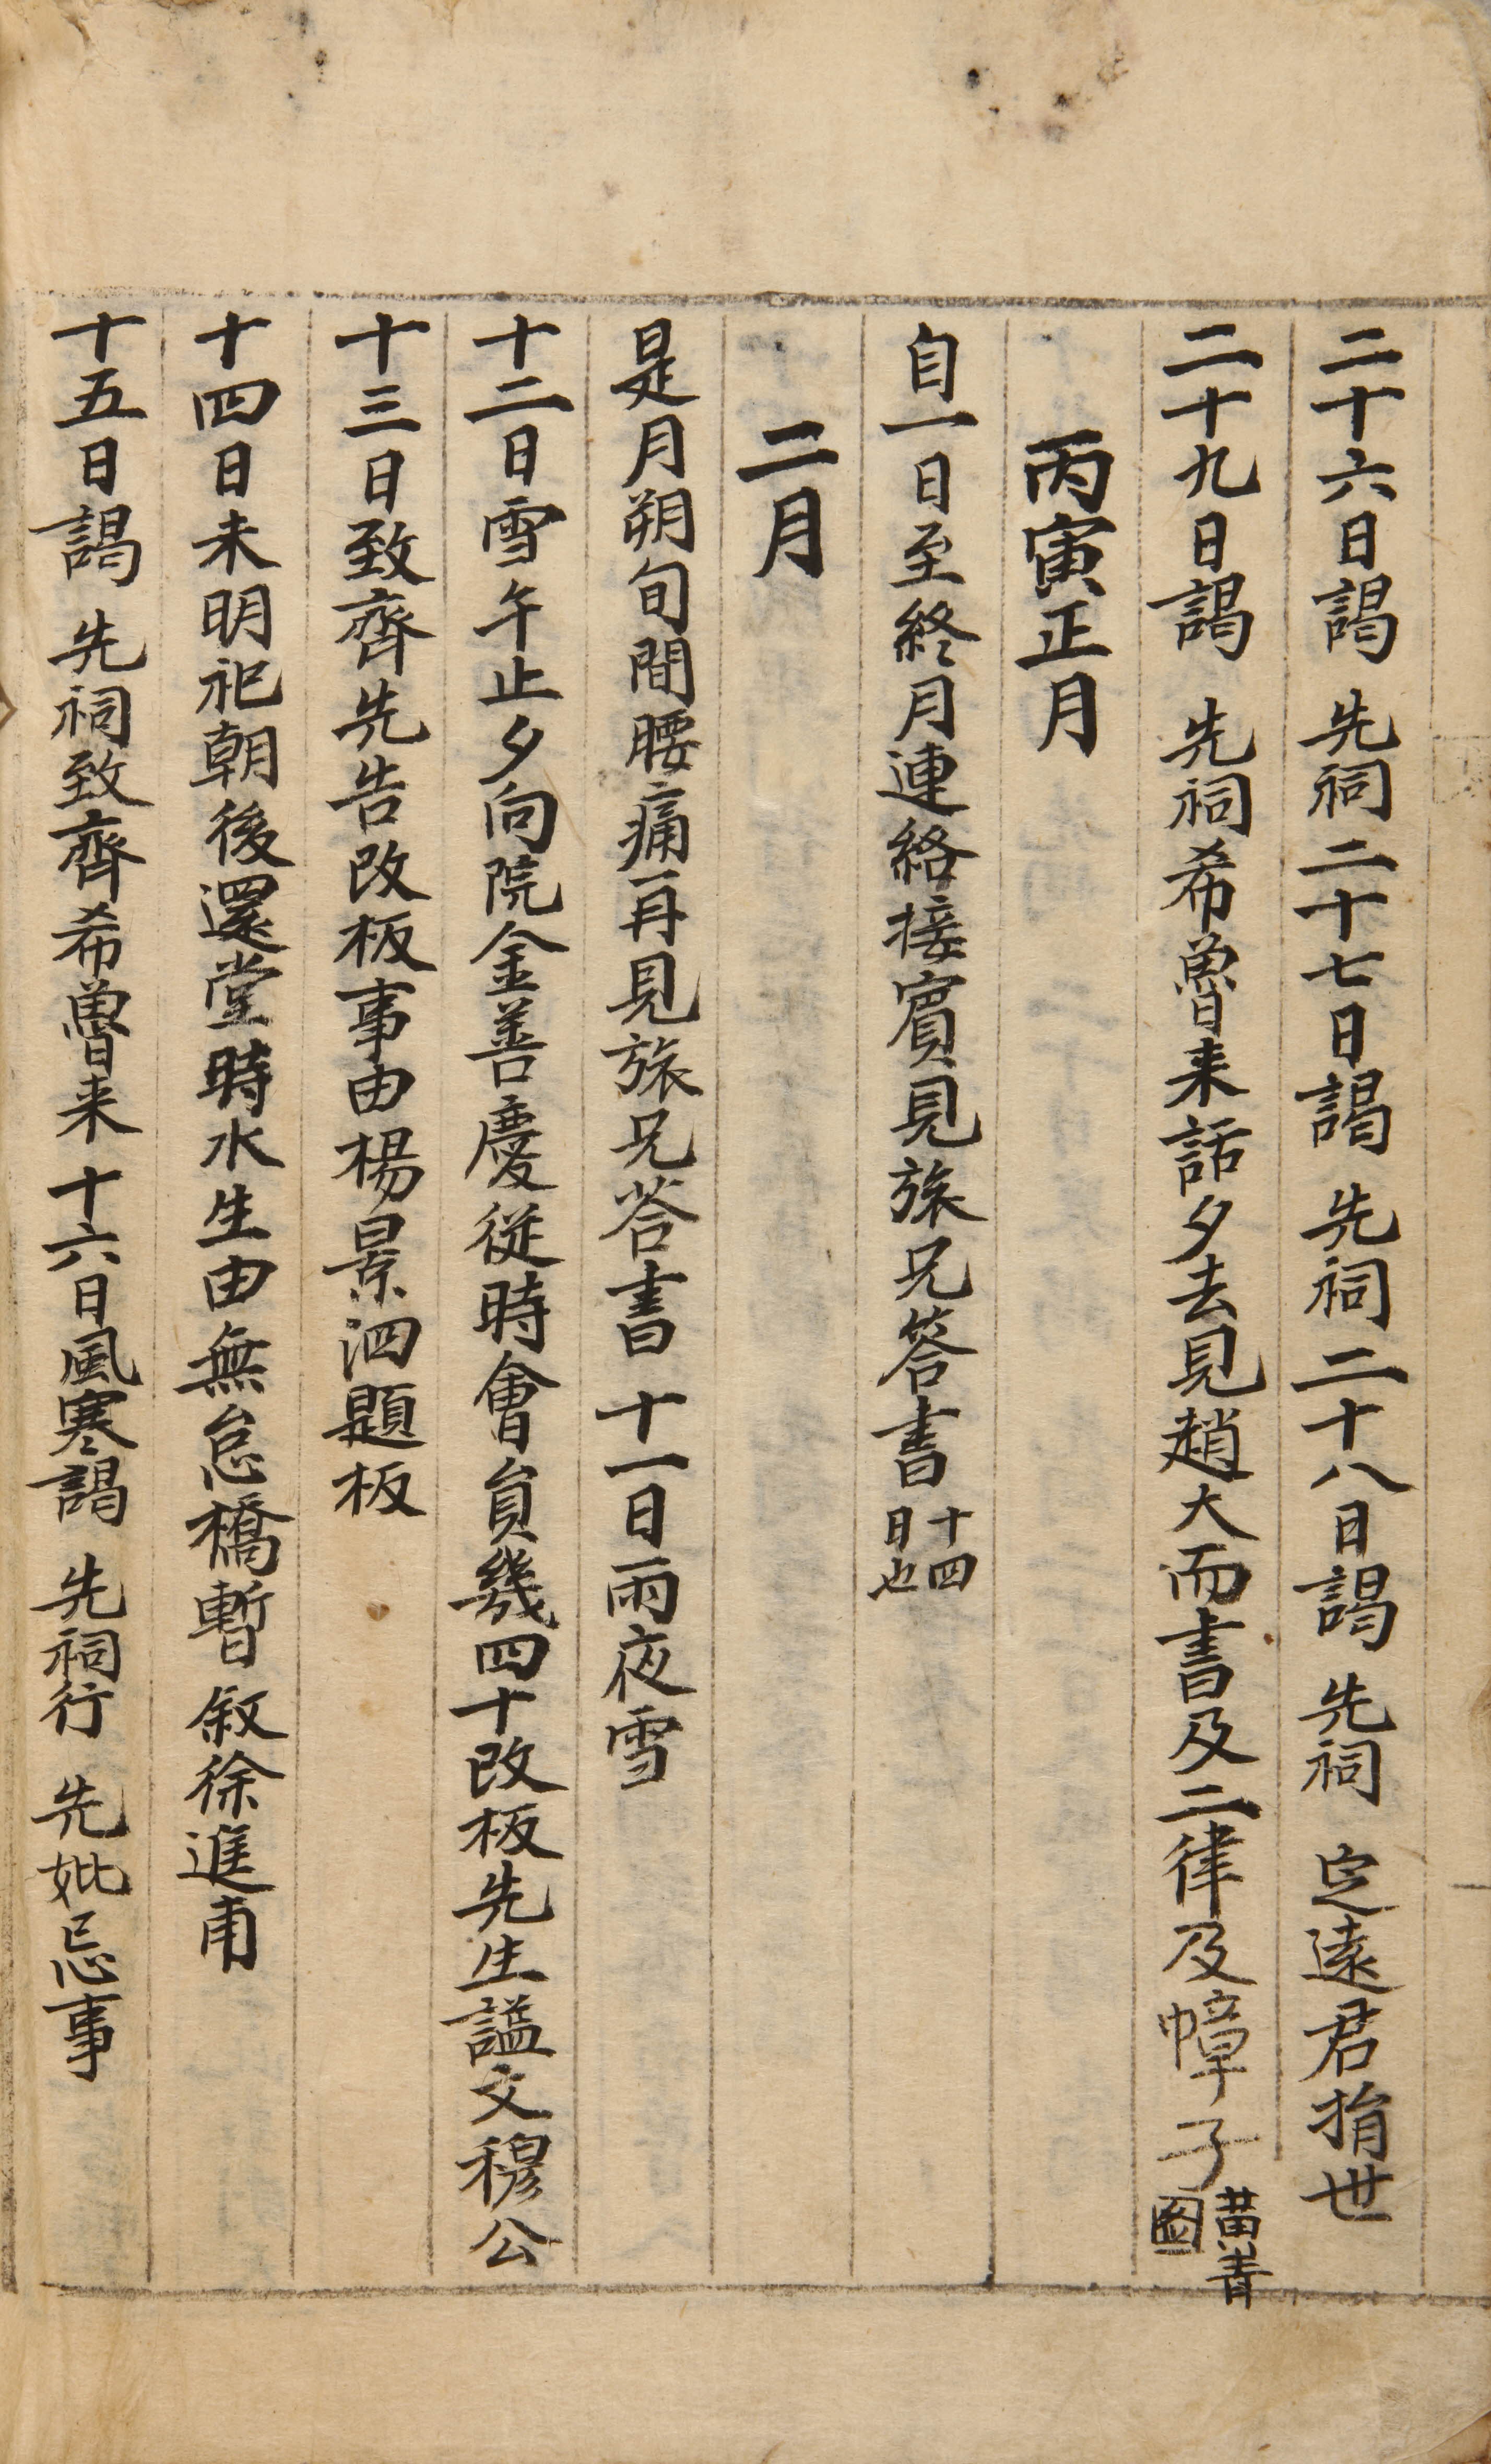 二十六日謁 先祠二十七日謁 先祠二十八日謁 先祠 定遠君捐世
二十九日謁 先祠希魯来話夕去見趙大而書及二律及幛子黃靑圖
丙寅正月
自一日至終月連絡接賓見旅兄答書十四日也
二月
是月朔旬間腰痛再見旅兄荅書 十一日雨夜雪
十二日雪午止夕向院金善慶従時會員幾四十改板先生謚文穆公
十三日致齊先告改板事由楊景泗題板
十四日未明祀朝後還堂時水生由無怠橋暫叙徐進甫
十五日謁 先祠致齊希魯来 十六日風寒謁 先祠行 先妣忌事